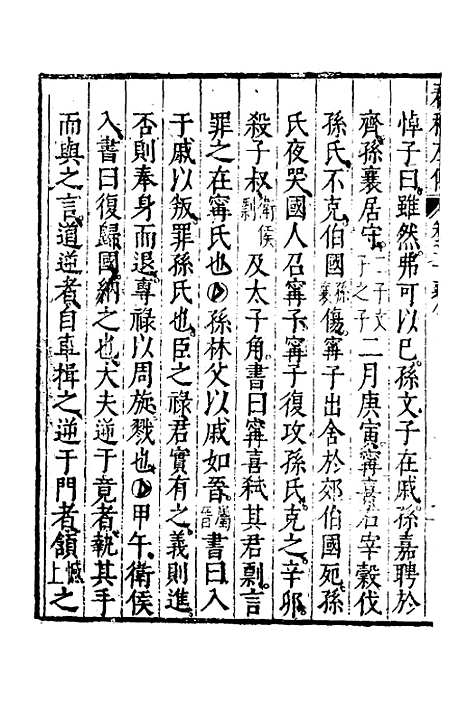 悼子曰雖然弗可以已孫文子在戚孫嘉聘於
齊孫襄居守二子文子之子二月庚寅甯喜右宰穀伐
孫氏不克伯國孫襄傷甯子出舍於郊伯國死孫
氏夜哭國人召甯子甯子復攻孫氏克之辛卯
殺子叔衛侯剽及太子角書曰甯喜弑其君剽言
罪之在甯氏也孫林父以戚如晉屬晉書曰入
于戚以叛罪孫氏也臣之祿君實有之義則進
否則奉身而退專祿以周旋戮也甲午衛侯
入書曰復歸國納之也大夫逆于竟者執其手
而與之言道逆者自車揖之逆于門者頷憾上之